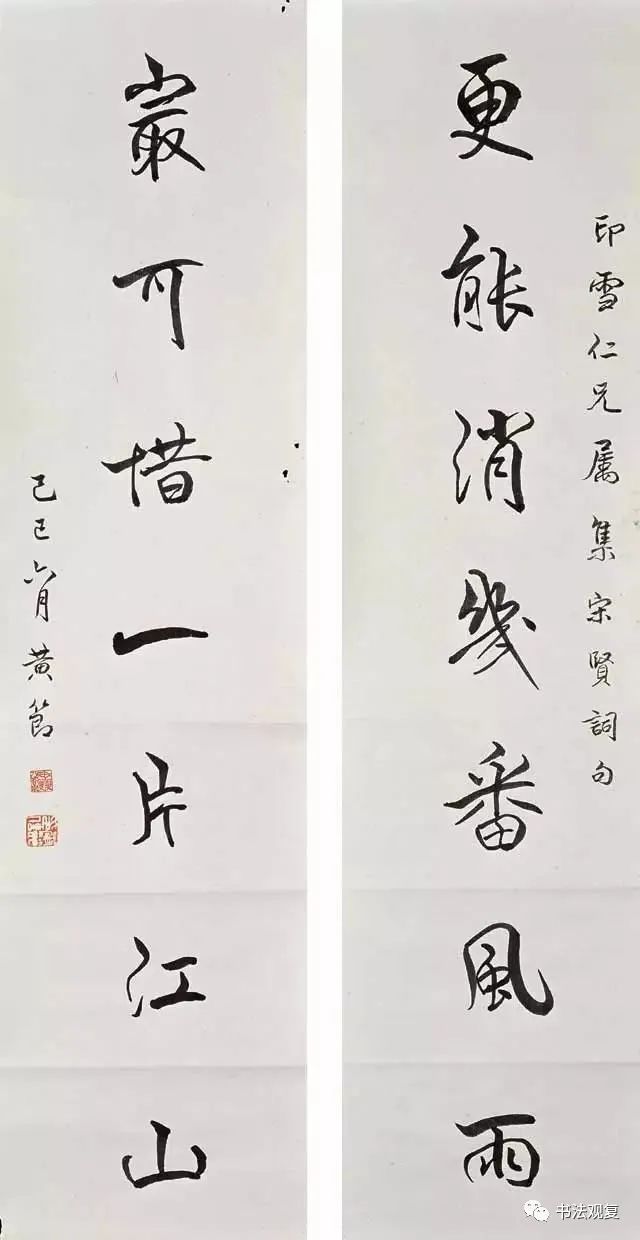 印雪仁兄属集宋賢詞句
更能消幾番風雨
㝡可惜一片江山
己巳六月黄節
书法观复